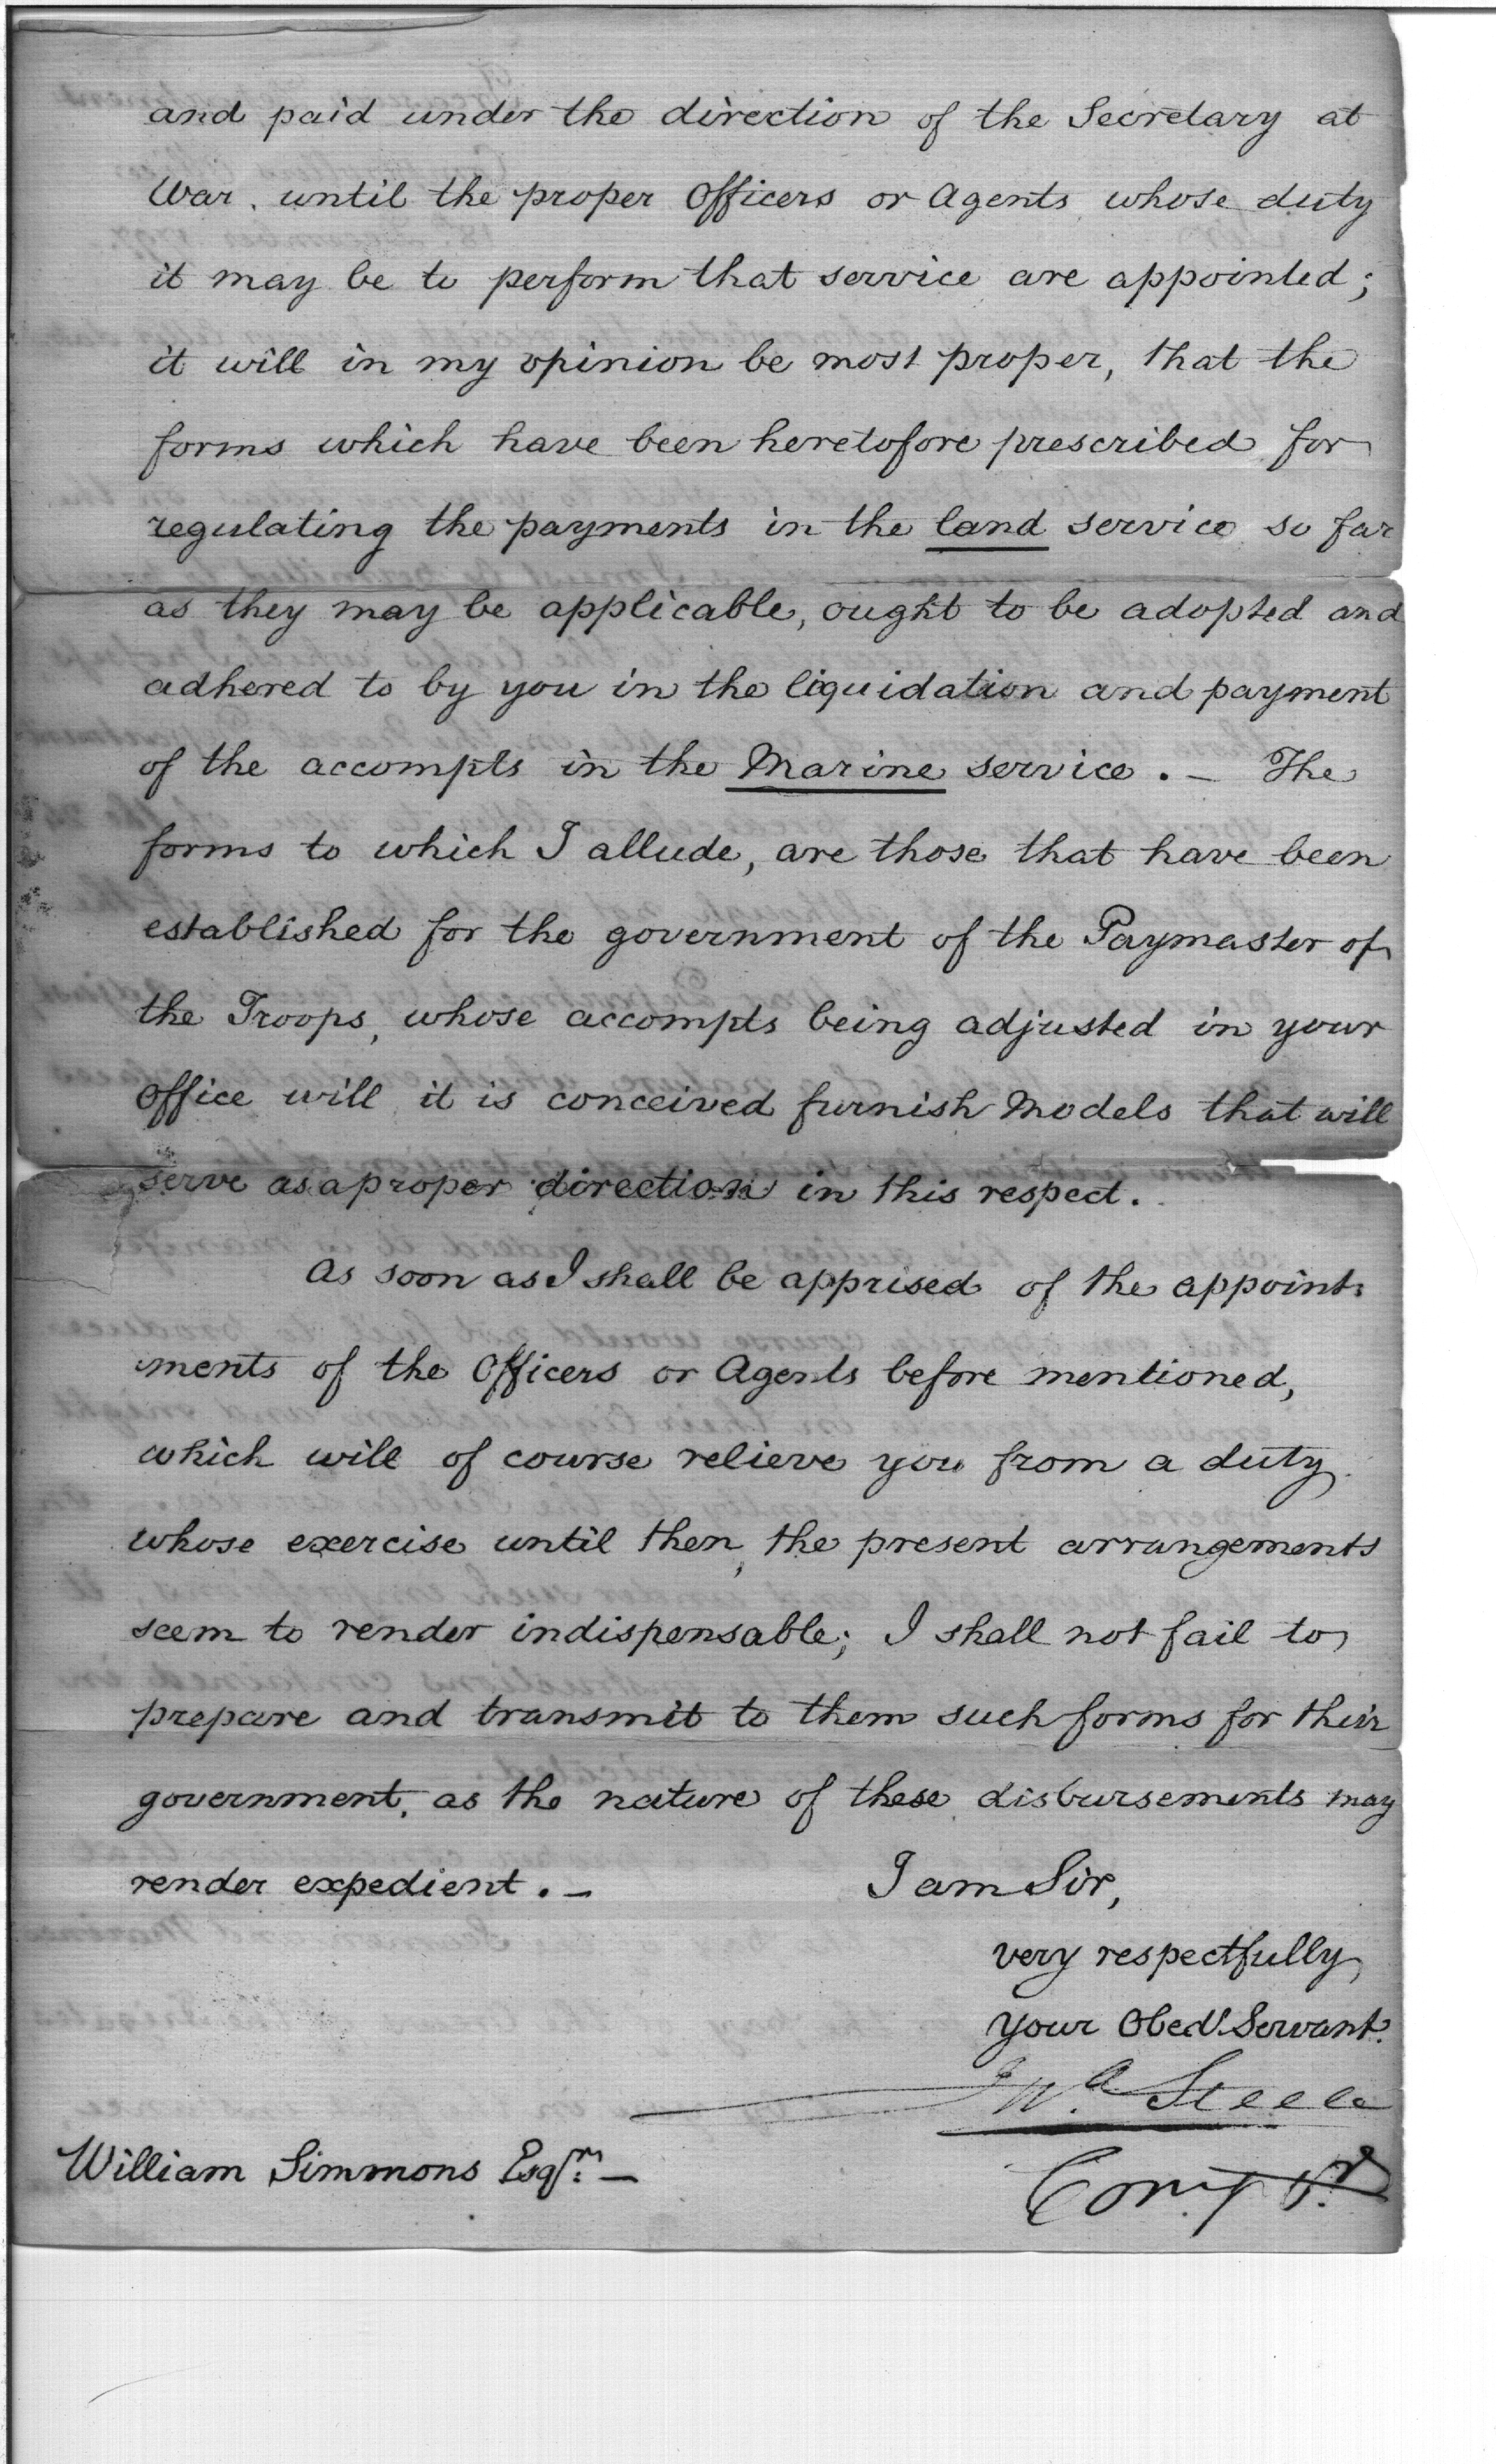 and paid under the direction of the Secretary at
War, until the proper Officers or Agents whose duty
it may be to perform that service are appointed;
it will in my opinion be most proper, that the
forms which have been heretofore prescribed for
regulating the payments in the land service so far
as they may be applicable, ought to be adopted and
adhered to by you in the liquidation and payment
of the accompts in the Marine service. - The
forms to which I allude, are those that have been
established for the government of the Paymaster of
the Troops, whose accompts being adjusted in your
Office will it is conceived furnish Models that will
serve as a proper direction in this respect.
As soon as I shall be apprised of the appoint:
ments of the Officers or Agents before mentioned,
which will of course relieve you from a duty
whose exercise until then, the present arrangements
seem to render indispensable; I shall not fail to
prepare and transmit to them such forms for their
government, as the nature of these disbursements may
render expedient. - I am Sir,
very respectfully,
your Obedt. Servant.
Jno. Steele
William Simmons Esqr. -